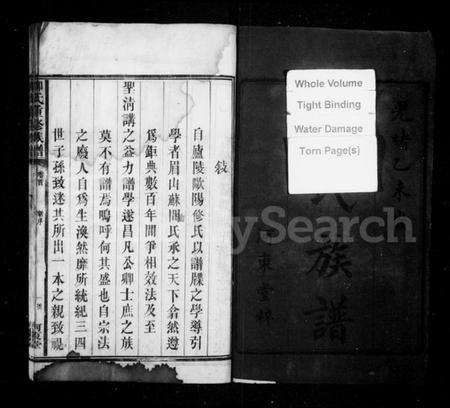 Whole Volume
Tight Binding
Water Damage
Torn Page(s)
光緒乙未
氏族譜
東堂梓
敍
自廬陵歐陽修氏以譜牒之學導引
學者眉山蘇閎氏承之天下翕然遵
爲鉅典數百年間爭相效法及至
聖淸講之益力譜學遂昌凡公卿士庶之族
莫不有譜焉嗚呼何其盛也自宗法
之廢人自爲生渙然靡所統紀三四
世子孫致迷其所出一本之親致視
氏首修族譜
卷首
Search